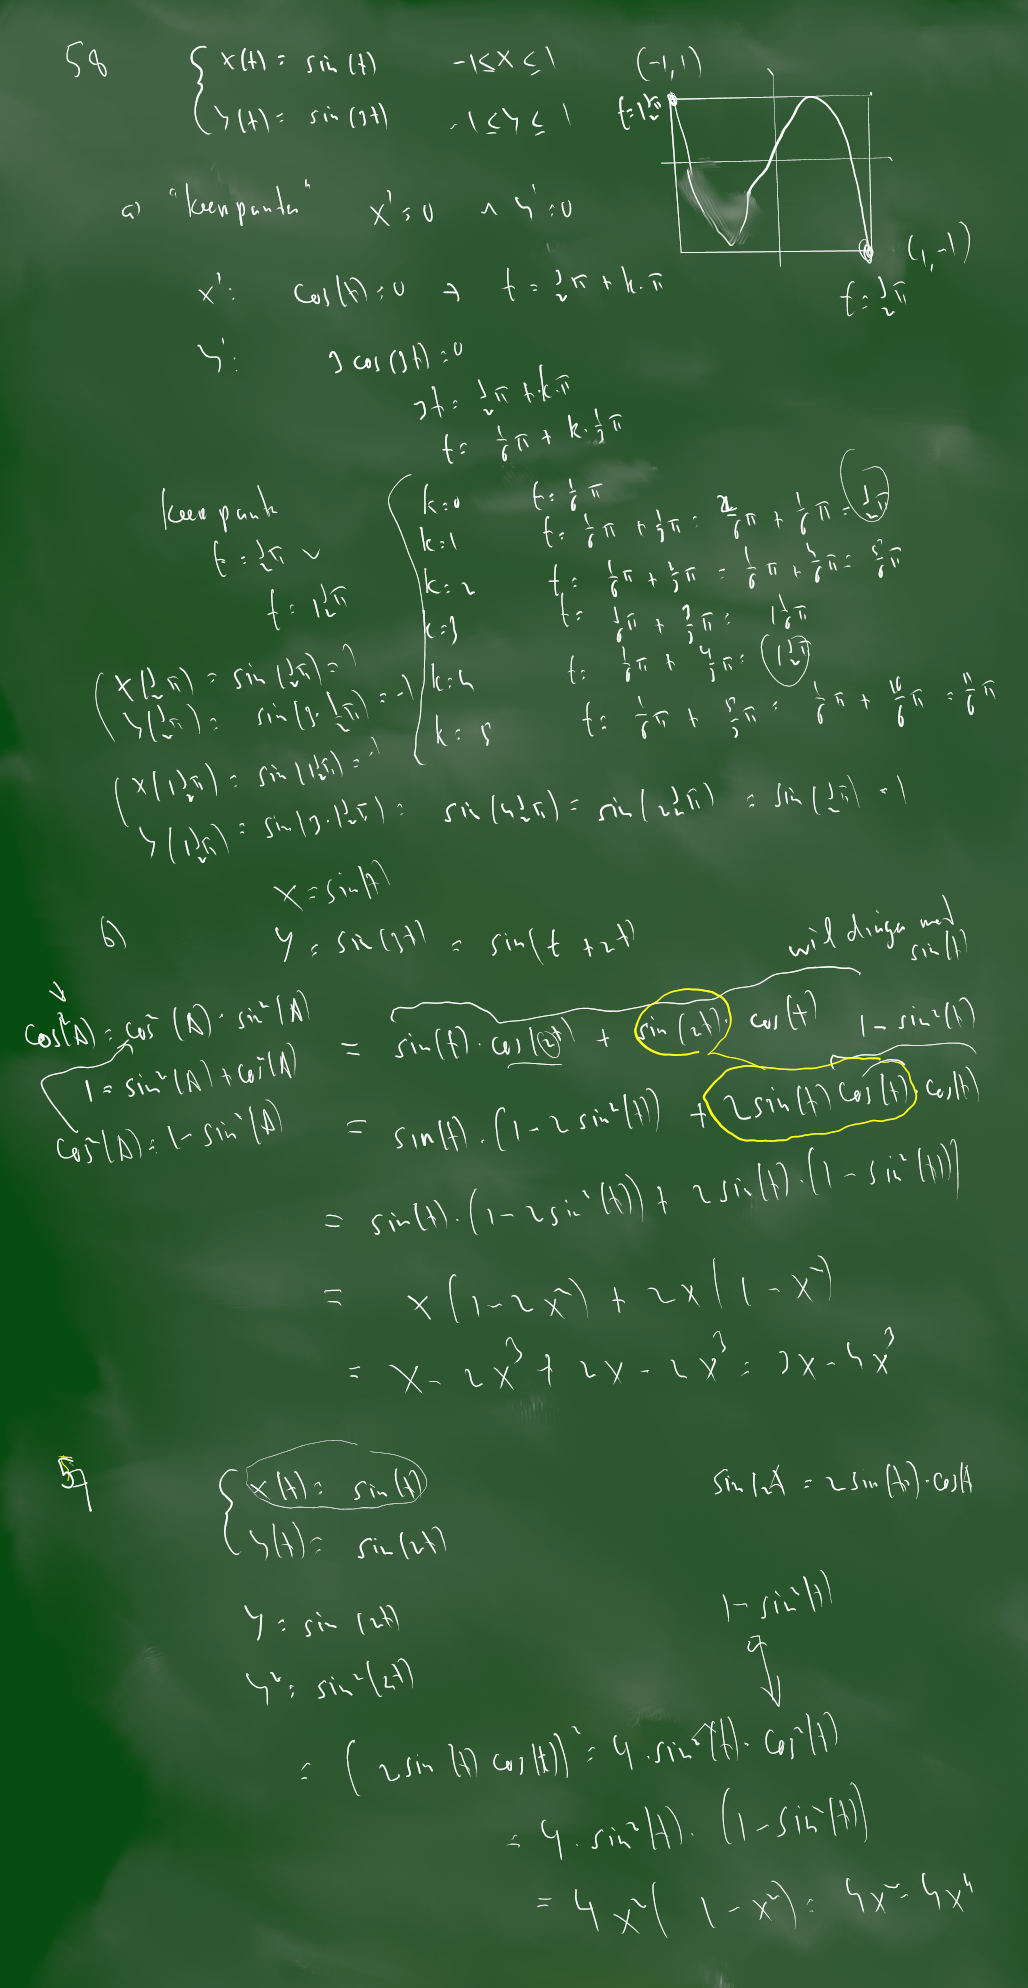 58
x(t) = sin(t) -1≤x≤1 (-1,1)
y(t) = sin(3t) -1≤y≤1 t=1½π
(1,-1)
t=½π
a) "keerpunten" x'=0 ∧ y'=0
x': cos(t)=0 → t = ½π + k·π
y': 3cos(3t)=0
3t = ½π + k·π
t = 1/6π + k·1/3π
keerpunt
t = ½π ∨
t = 1½π
k=0 t = 1/6π
k=1 t = 1/6π + 1/3π = 2/6π + 1/6π = ½π
k=2 t = 1/6π + 2/3π = 1/6π + 4/6π = 5/6π
k=3 t = 1/6π + 3/3π = 1 1/6π
k=4 t = 1/6π + 4/3π = 1½π
k=5 t = 1/6π + 5/3π = 1/6π + 10/6π = 11/6π
x(½π) = sin(½π) = 1
y(½π) = sin(3·½π) = -1
x(1½π) = sin(1½π) = -1
y(1½π) = sin(3·1½π) = sin(4½π) = sin(2½π) = sin(½π) = 1
x = sin(t)
b) y = sin(3t) = sin(t + 2t)
wil dingen met
sin(t)
= sin(t)·cos(2t) + sin(2t)·cos(t) 1 - sin²(t)
cos(2A) = cos²(A) - sin²(A)
1 = sin²(A) + cos²(A)
cos²(A) = 1 - sin²(A)
= sin(t)·(1 - 2sin²(t)) + 2sin(t)cos(t)·cos(t)
= sin(t)·(1 - 2sin²(t)) + 2sin(t)·(1 - sin²(t))
= x(1 - 2x²) + 2x(1 - x²)
= x - 2x³ + 2x - 2x³ = 3x - 4x³
57
x(t) = sin(t) sin(2A) = 2sin(A)·cos(A)
y(t) = sin(2t)
y = sin(2t) 1 - sin²(t)
y² = sin²(2t)
= (2sin(t)cos(t))² = 4·sin²(t)·cos²(t)
= 4·sin²(t)·(1 - sin²(t))
= 4x²(1 - x²) = 4x² - 4x⁴